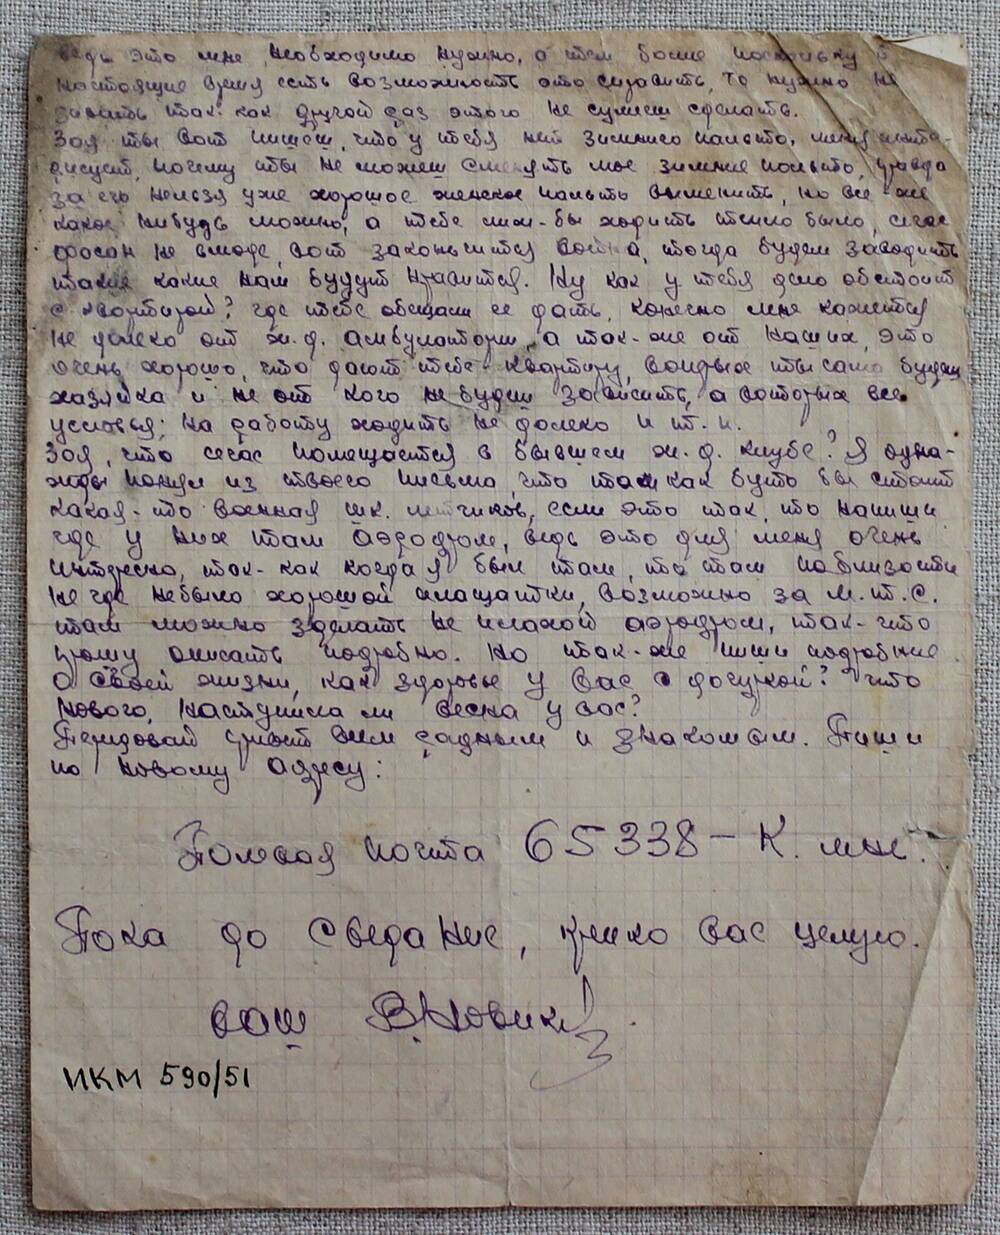 ведь это мне необходимо нужно, а тем более поскольку в
настоящие время есть возможность это справить, то нужно не
зивать так-как другой раз этого не сумеш сделать.
Зоя ты вот пишеш, что у тебя нет зимнего пальто, меня инте-
рисует, почему ты не можеш сменять мое зимнее пальто, правда
за его нельзя уже хорошое женское пальто выменить, но все-же
какое нибудь можно, а тебе лиж-бы ходить тепло было, сечас
фасон не вмоде вот закончится война, тогда будем заводить
такие какие нам будут нравится. Ну как у тебя дело обстоит
с квортирой? где тебе обещали ее дать, конечно мне кажется
не далеко от ж.д. амбулатории, а так-же от наших, это
очень хорошо, что дают тебе квартиру, вопрвых ты сама будеш
хазяйка и не от кого не будеш зависить, а вовторых все
условья; на работу ходить не далеко и т.п.
Зоя, что сечас помещается в бывшем ж.д. клубе? Я одна-
жды понял из твоего письма, что там как буто бы стоит
какая-то военная шк. летчиков, если это так, то напиши
где у них там аэродром, ведь это для меня очень
интересно, так-как когда я был там, то там поблизости
не где небыло хорошой площатки, возможно за М.Т.С.
там можно зделать не плохой аэродром, так-что
прошу описать подробно. Но так-же пиши подробние
о своей жизни, как здоровье у вас с дочуркой? что
нового, наступила ли весна у вас?
Передовай привет всем родным и знакомым. Пиши
по новому адресу:
Полевая почта 65338-К. мне.
Пока до сведание, крепко вас целую.
ваш В Новик
ИКМ 590/51